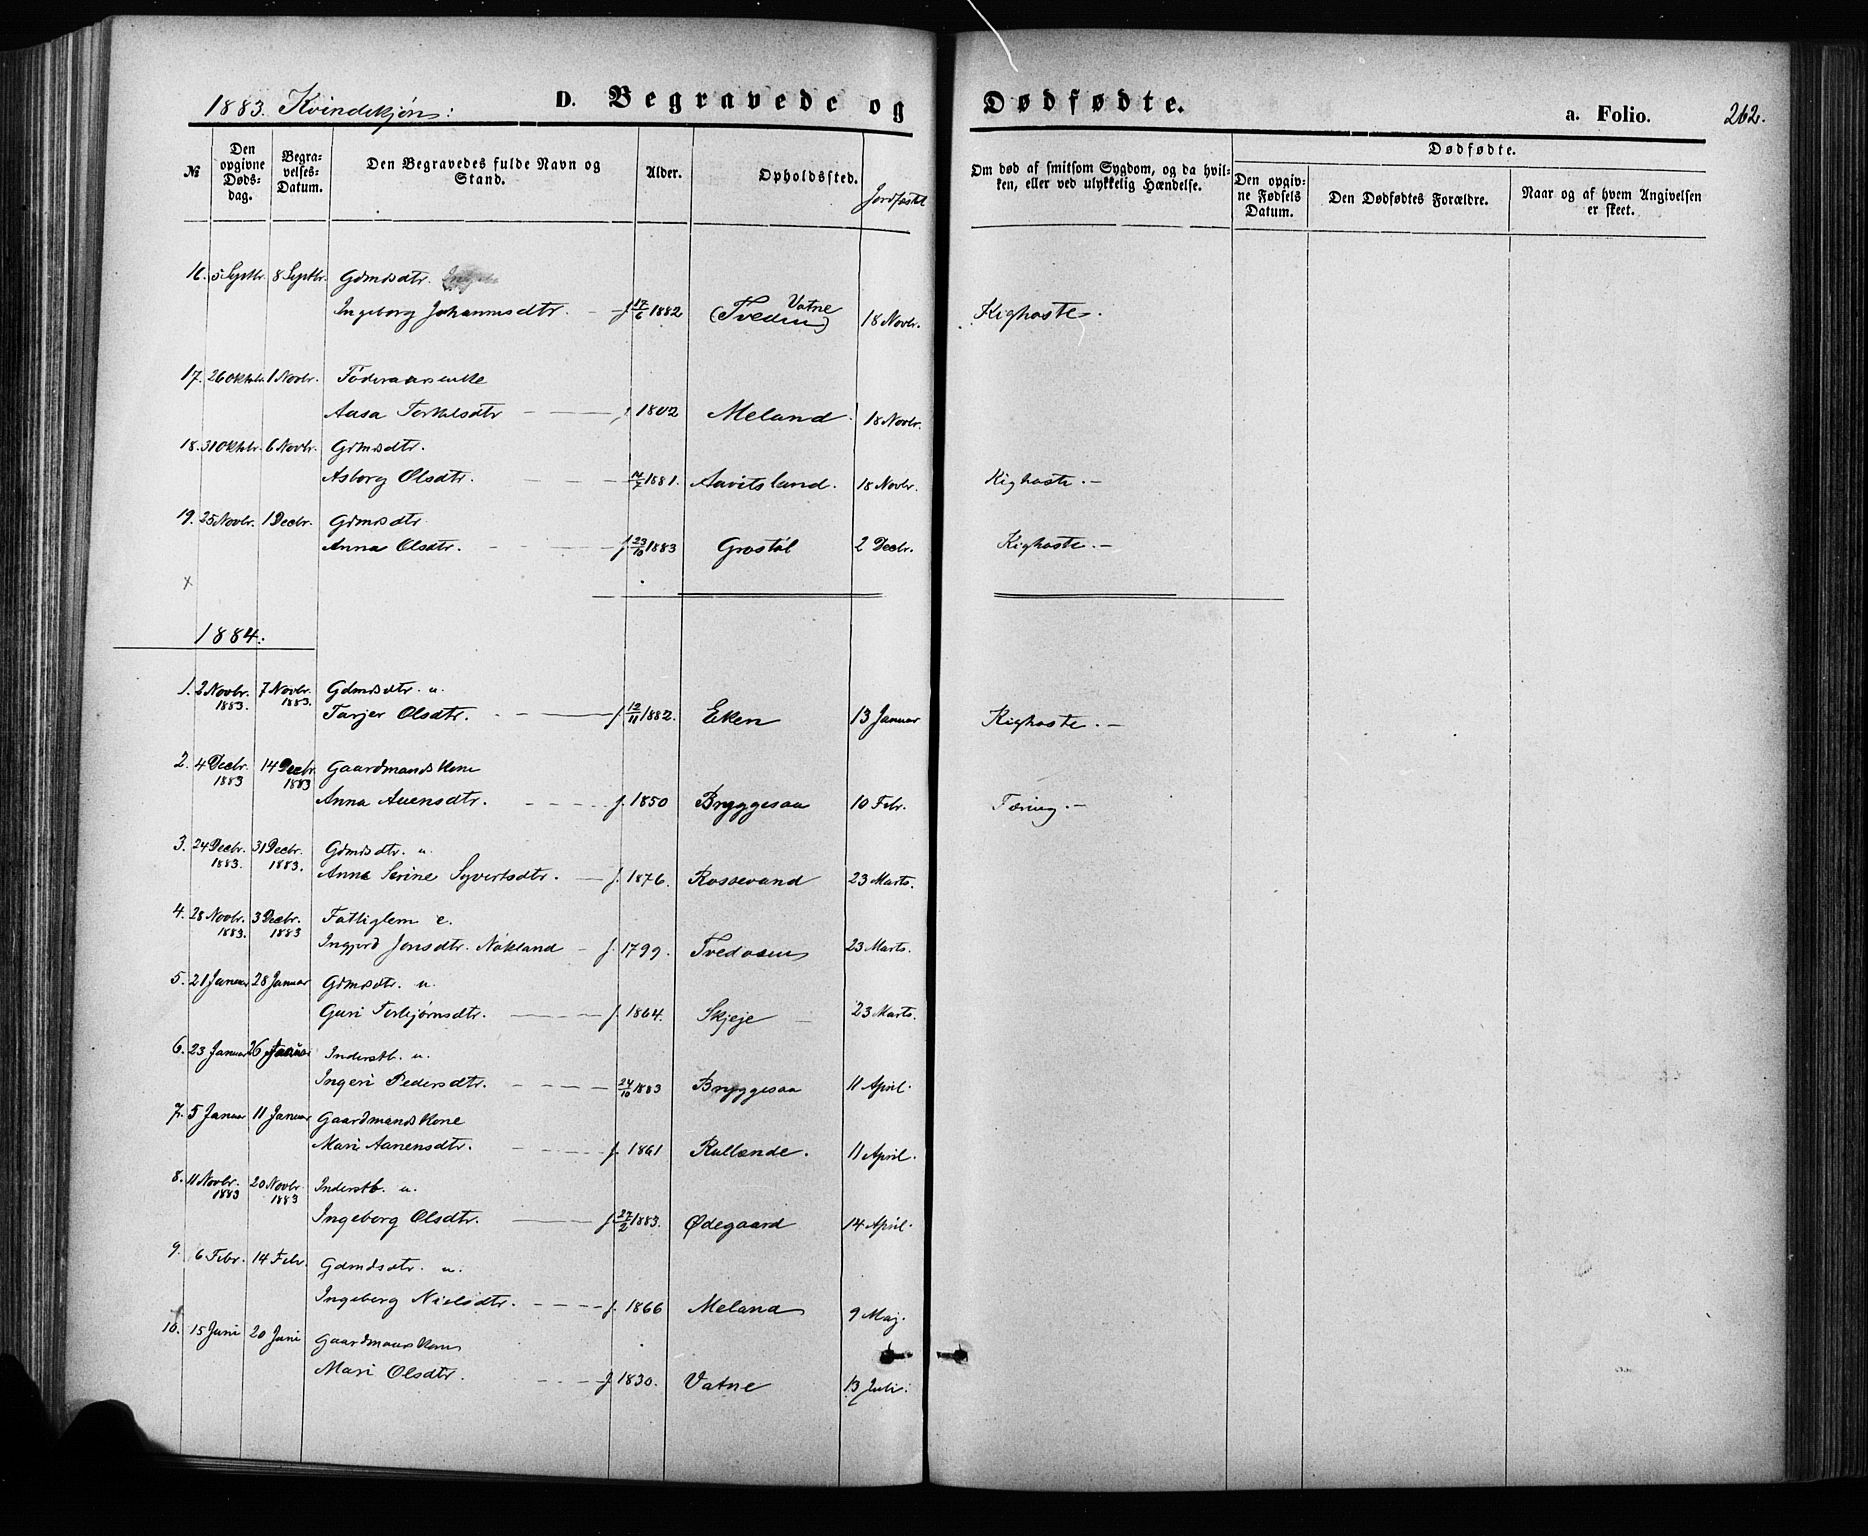 1883. Kvindekjøn: D. Begravede og Dødfødte. a. Folio. 262.
№ Den opgivne Døds-dag. Begra-velses-Datum. Den Begravedes fulde Navn og Stand. Alder. Opholdssted. Jordfæstet Om død af smitsom Sygdom, og da hvil-ken, eller ved ulykkelig Hændelse. Dødfødte.
Den opgiv-ne Fødsels Datum. Den Dødfødtes Forældre. Naar og af hvem Angivelsen er skeet.
16. 5 Septbr. 8 Septbr. Gdmdsdtr.
Ingeborg Johannesdtr. f 17/6 1882 Vatne (Tveden) 18 Novbr. Kighoste.
17. 26 Oktbr. 1 Novbr. Föderaadsenke
Aasa Torkelsdtr f. 1802 Meland. 18 Novbr.
18. 31 Oktbr. 6 Novbr. Gdmdsdtr.
Asborg Olsdtr. 17/7 1881. Aavitsland. 18 Novbr. Kighoste.-
19. 25 Novbr. 1 Decbr. Gdmdsdtr.
Anna Olsdtr. f 23/10 1883 Grostöl 2 Decbr. Kighoste.-
x
1884.
1. 2 Novbr. 1883. 7 Novbr. 1883. Gdmdsdtr. u.
Tarjer Olsdtr. f 12/11 1882. Eken 13 Januar Kighoste.-
2. 4 Decbr. 1883 14 Decbr. 1883 Gaardmandskone
Anna Auensdtr. f. 1850 Bryggesaa 10 Febr. Tæring.-
3. 24 Decbr. 1883. 31 Decbr. 1883. Gdmdsdtr. u.
Anne Serine Syvertsdtr. f. 1876. Rossevand 23 Marts.
4. 28 Novbr. 1883. 3 Decbr. 1883 Fattiglem e.
Ingjerd Jonsdtr. Nökland f. 1799. Tvedosen 23 Marts.
5. 21 Januar 28 Januar Gdmdsdtr. u.
Guri Torbjørnsdtr. f. 1864. Skjeje 23 Marts.
6. 23 Januar 26 Januar Inderstb. u.
Ingeri Pedersdtr. 24/10 1883 Bryggesaa 11 April.
7. 5 Januar 11 Januar Gaardmandskone
Mari Aanensdtr. f. 1861 Rullende. 11 April.
8. 11 Novbr. 1883 20 Novbr. 1883 Inderstb. u.
Ingeborg Olsdtr. f 27/2 1883. Ødegaard 14 April.
9. 6 Febr. 14 Febr. Gdmdsdtr. u.
Ingeborg Nielsdtr. f. 1866 Meland 9 Maj.
10. 15 Juni 20 Juni Gaardmandskone
Mari Olsdtr. f 1830. Vatne 13 Juli.